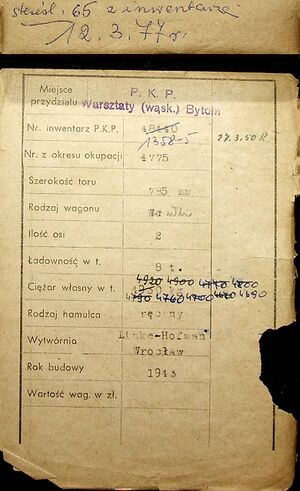 skreśl. 65 z inwentarza
12.3.77 r.
Miejsce przydziału P. K. P. Warsztaty (wąsk.) Bytom
Nr. inwentarz P.K.P. 1358-5 27.3.50 R.
Nr. z okresu okupacji 4775
Szerokość toru 785 mm
Rodzaj wagonu
Ilość osi 2
Ładowność w t. 8 t.
4920 4900 4800
Ciężar własny w t.
4760 4700 4690
Rodzaj hamulca ręczny
Wytwórnia Linke-Hofman Wrocław
Rok budowy 1943
Wartość wag. w zł.